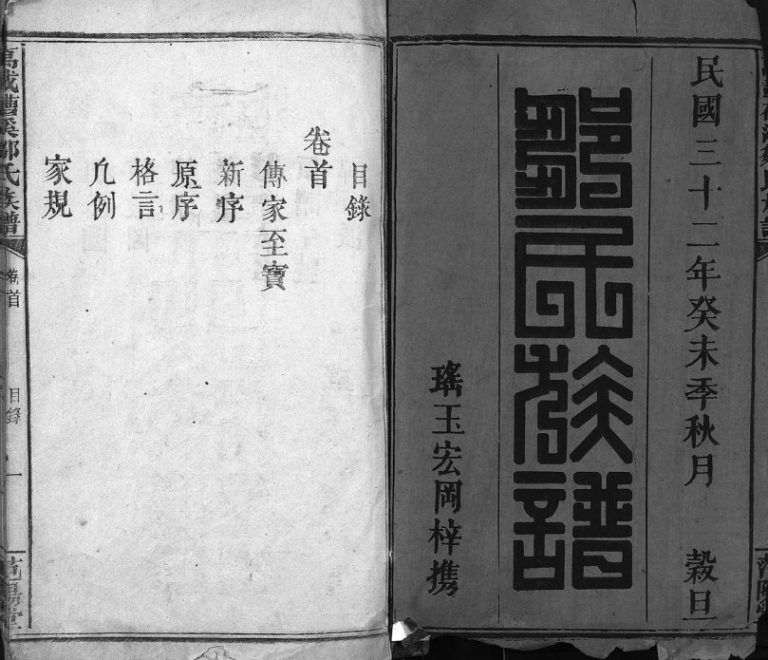 民國三十二年癸未季秋月 穀旦
鄒氏族譜
瑤玉宏岡梓携
目錄
卷首
傳家至寶
新序
原序
格言
凡例
家規
萬載漕溪鄒氏族譜
卷首
目錄
一
范陽堂